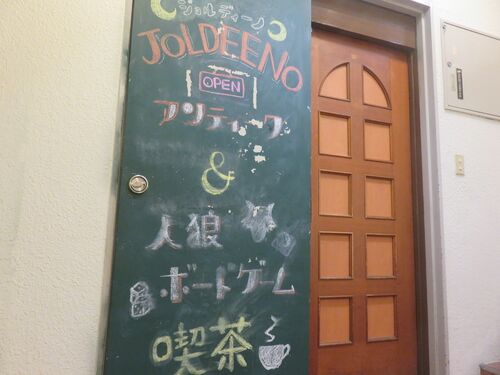 ジョルディーノ
JOLDEENO
OPEN
アンティーク
&
人狼
ボードゲーム
喫茶